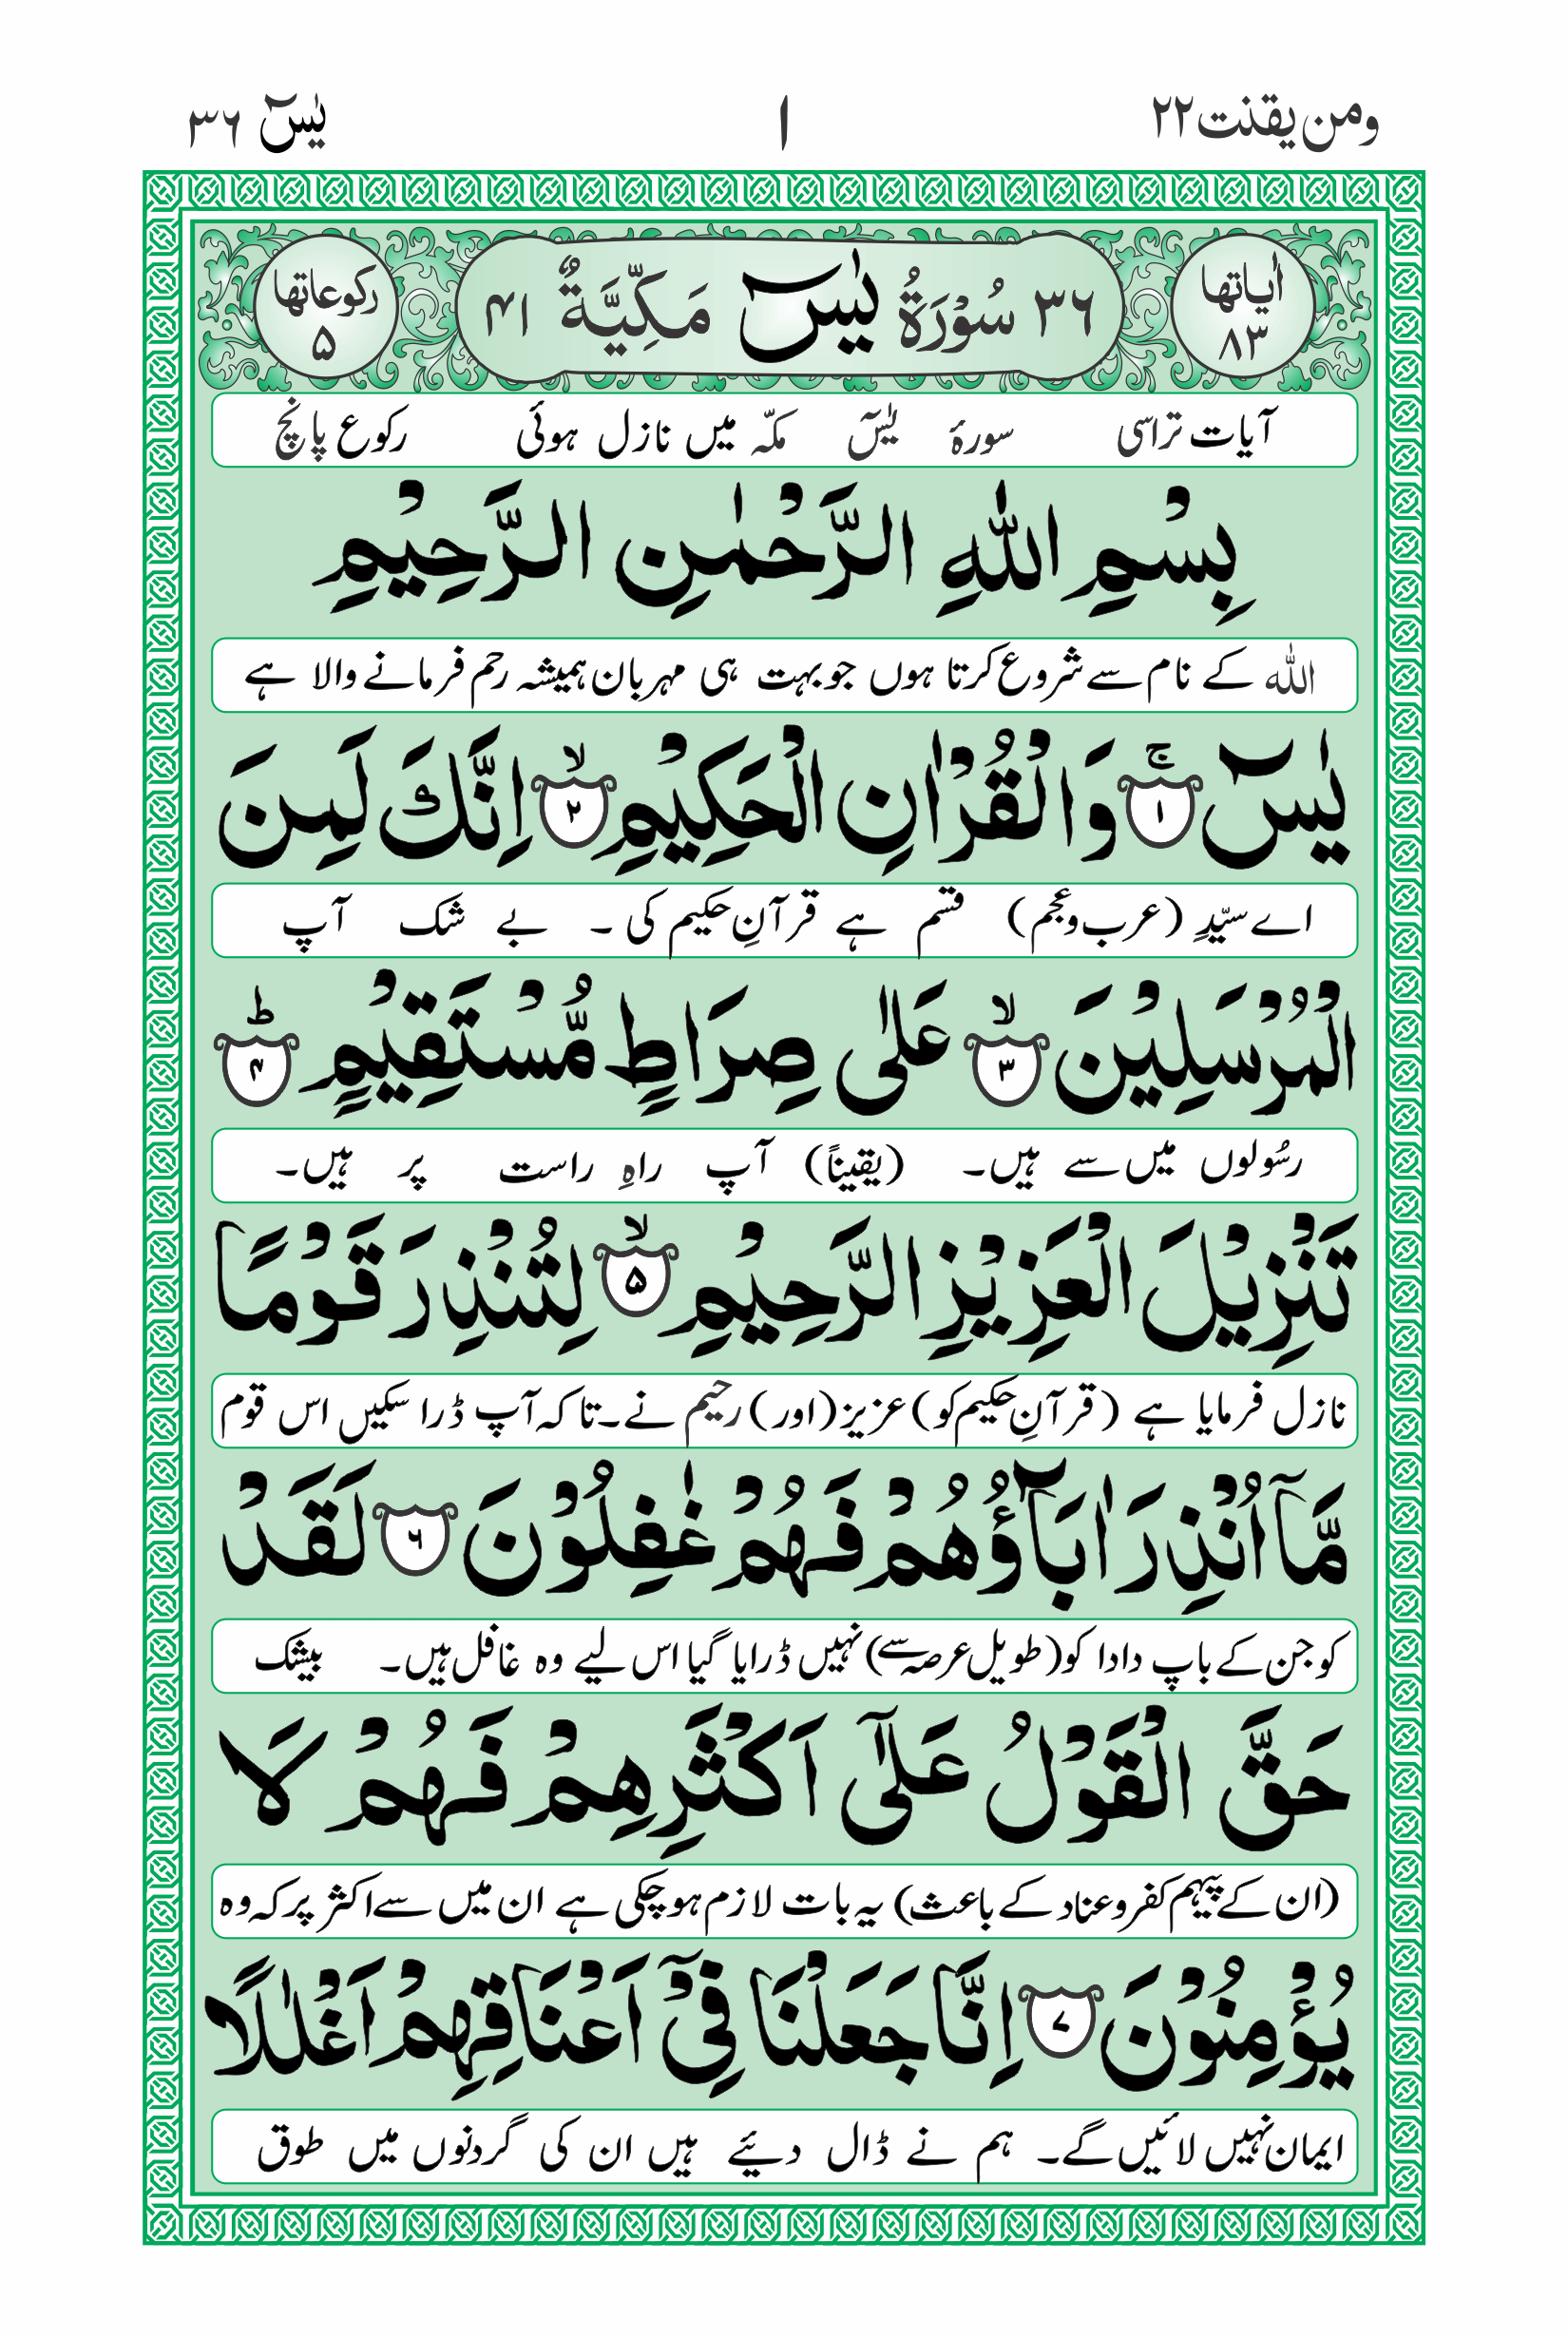 ومن یقنت ۲۲ ۱ یٰسٓ ۳۶
اٰیاتها ۸۳ ۳۶ سُوْرَةُ یٰسٓ مَكِّیَّةٌ ۴۱ رکوعاتها ۵
آیات تراسی سورۂ یٰسٓ مکّہ میں نازل ہوئی رکوع پانچ
بِسْمِ اللّٰهِ الرَّحْمٰنِ الرَّحِیْمِ
اللّٰہ کے نام سے شروع کرتا ہوں جو بہت ہی مہربان ہمیشہ رحم فرمانے والا ہے
یٰسٓ ۚ‏﴿۱﴾ وَالْقُرْاٰنِ الْحَكِیْمِ ۙ‏﴿۲﴾ اِنَّكَ لَمِنَ
اے سیّدِ (عرب و عجم) قسم ہے قرآنِ حکیم کی ۔ بے شک آپ
الْمُرْسَلِیْنَ ۙ‏﴿۳﴾ عَلٰی صِرَاطٍ مُّسْتَقِیْمٍ ؕ‏﴿۴﴾
رسُولوں میں سے ہیں۔ (یقیناً) آپ راہِ راست پر ہیں۔
تَنْزِیْلَ الْعَزِیْزِ الرَّحِیْمِ ۙ‏﴿۵﴾ لِتُنْذِرَ قَوْمًا
نازل فرمایا ہے (قرآنِ حکیم کو) عزیز (اور) رحیم نے۔ تاکہ آپ ڈرا سکیں اس قوم
مَّاۤ اُنْذِرَ اٰبَآؤُهُمْ فَهُمْ غٰفِلُوْنَ ﴿۶﴾ لَقَدْ
کو جن کے باپ دادا کو (طویل عرصہ سے) نہیں ڈرایا گیا اس لیے وہ غافل ہیں۔ بیشک
حَقَّ الْقَوْلُ عَلٰۤی اَكْثَرِهِمْ فَهُمْ لَا
(ان کے پیہم کفر و عناد کے باعث) یہ بات لازم ہو چکی ہے ان میں سے اکثر پر کہ وہ
یُؤْمِنُوْنَ ﴿۷﴾ اِنَّا جَعَلْنَا فِیْۤ اَعْنَاقِهِمْ اَغْلٰلًا
ایمان نہیں لائیں گے۔ ہم نے ڈال دیئے ہیں ان کی گردنوں میں طوق